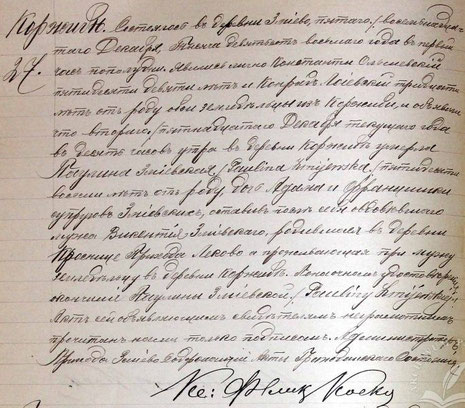 Корниен.
27.
Состоялось въ деревнѣ Зміево, пятаго/восемьнадца-
таго Декабря, Тысяча девятьсотъ восьмаго года въ первый
часъ пополудни. Явились лично Константинъ
пятидесяти девяти лѣтъ и Конрадъ тридцати
лѣтъ отъ роду оба земледѣльцы и объявили
что втораго/пятнадцатаго Декабря текущаго года
въ десять часовъ утра въ деревнѣ умерла
Паулина Зміевская /Paulina Żmijewska/ пятидесяти
восьми лѣтъ отъ роду дочь Адама и Францишки
супруговъ Зміевскихъ, оставивъ послѣ себя овдовѣвшаго
мужа Викентія Зміевскаго, родившаяся въ деревнѣ
прихода Леково а проживавшая при мужѣ
земледѣльцѣ въ деревнѣ По настоящемъ удостовѣреніи
о кончинѣ Паулины Зміевской /Pauliny Żmijewskiej/
Актъ сей объявляющимъ свидѣтелямъ неграмотнымъ
прочитанъ нами только подписанъ. Администраторъ
Прихода Зміево Содержащій Акты Гражданскаго Состоянія
Кс: Феликъ